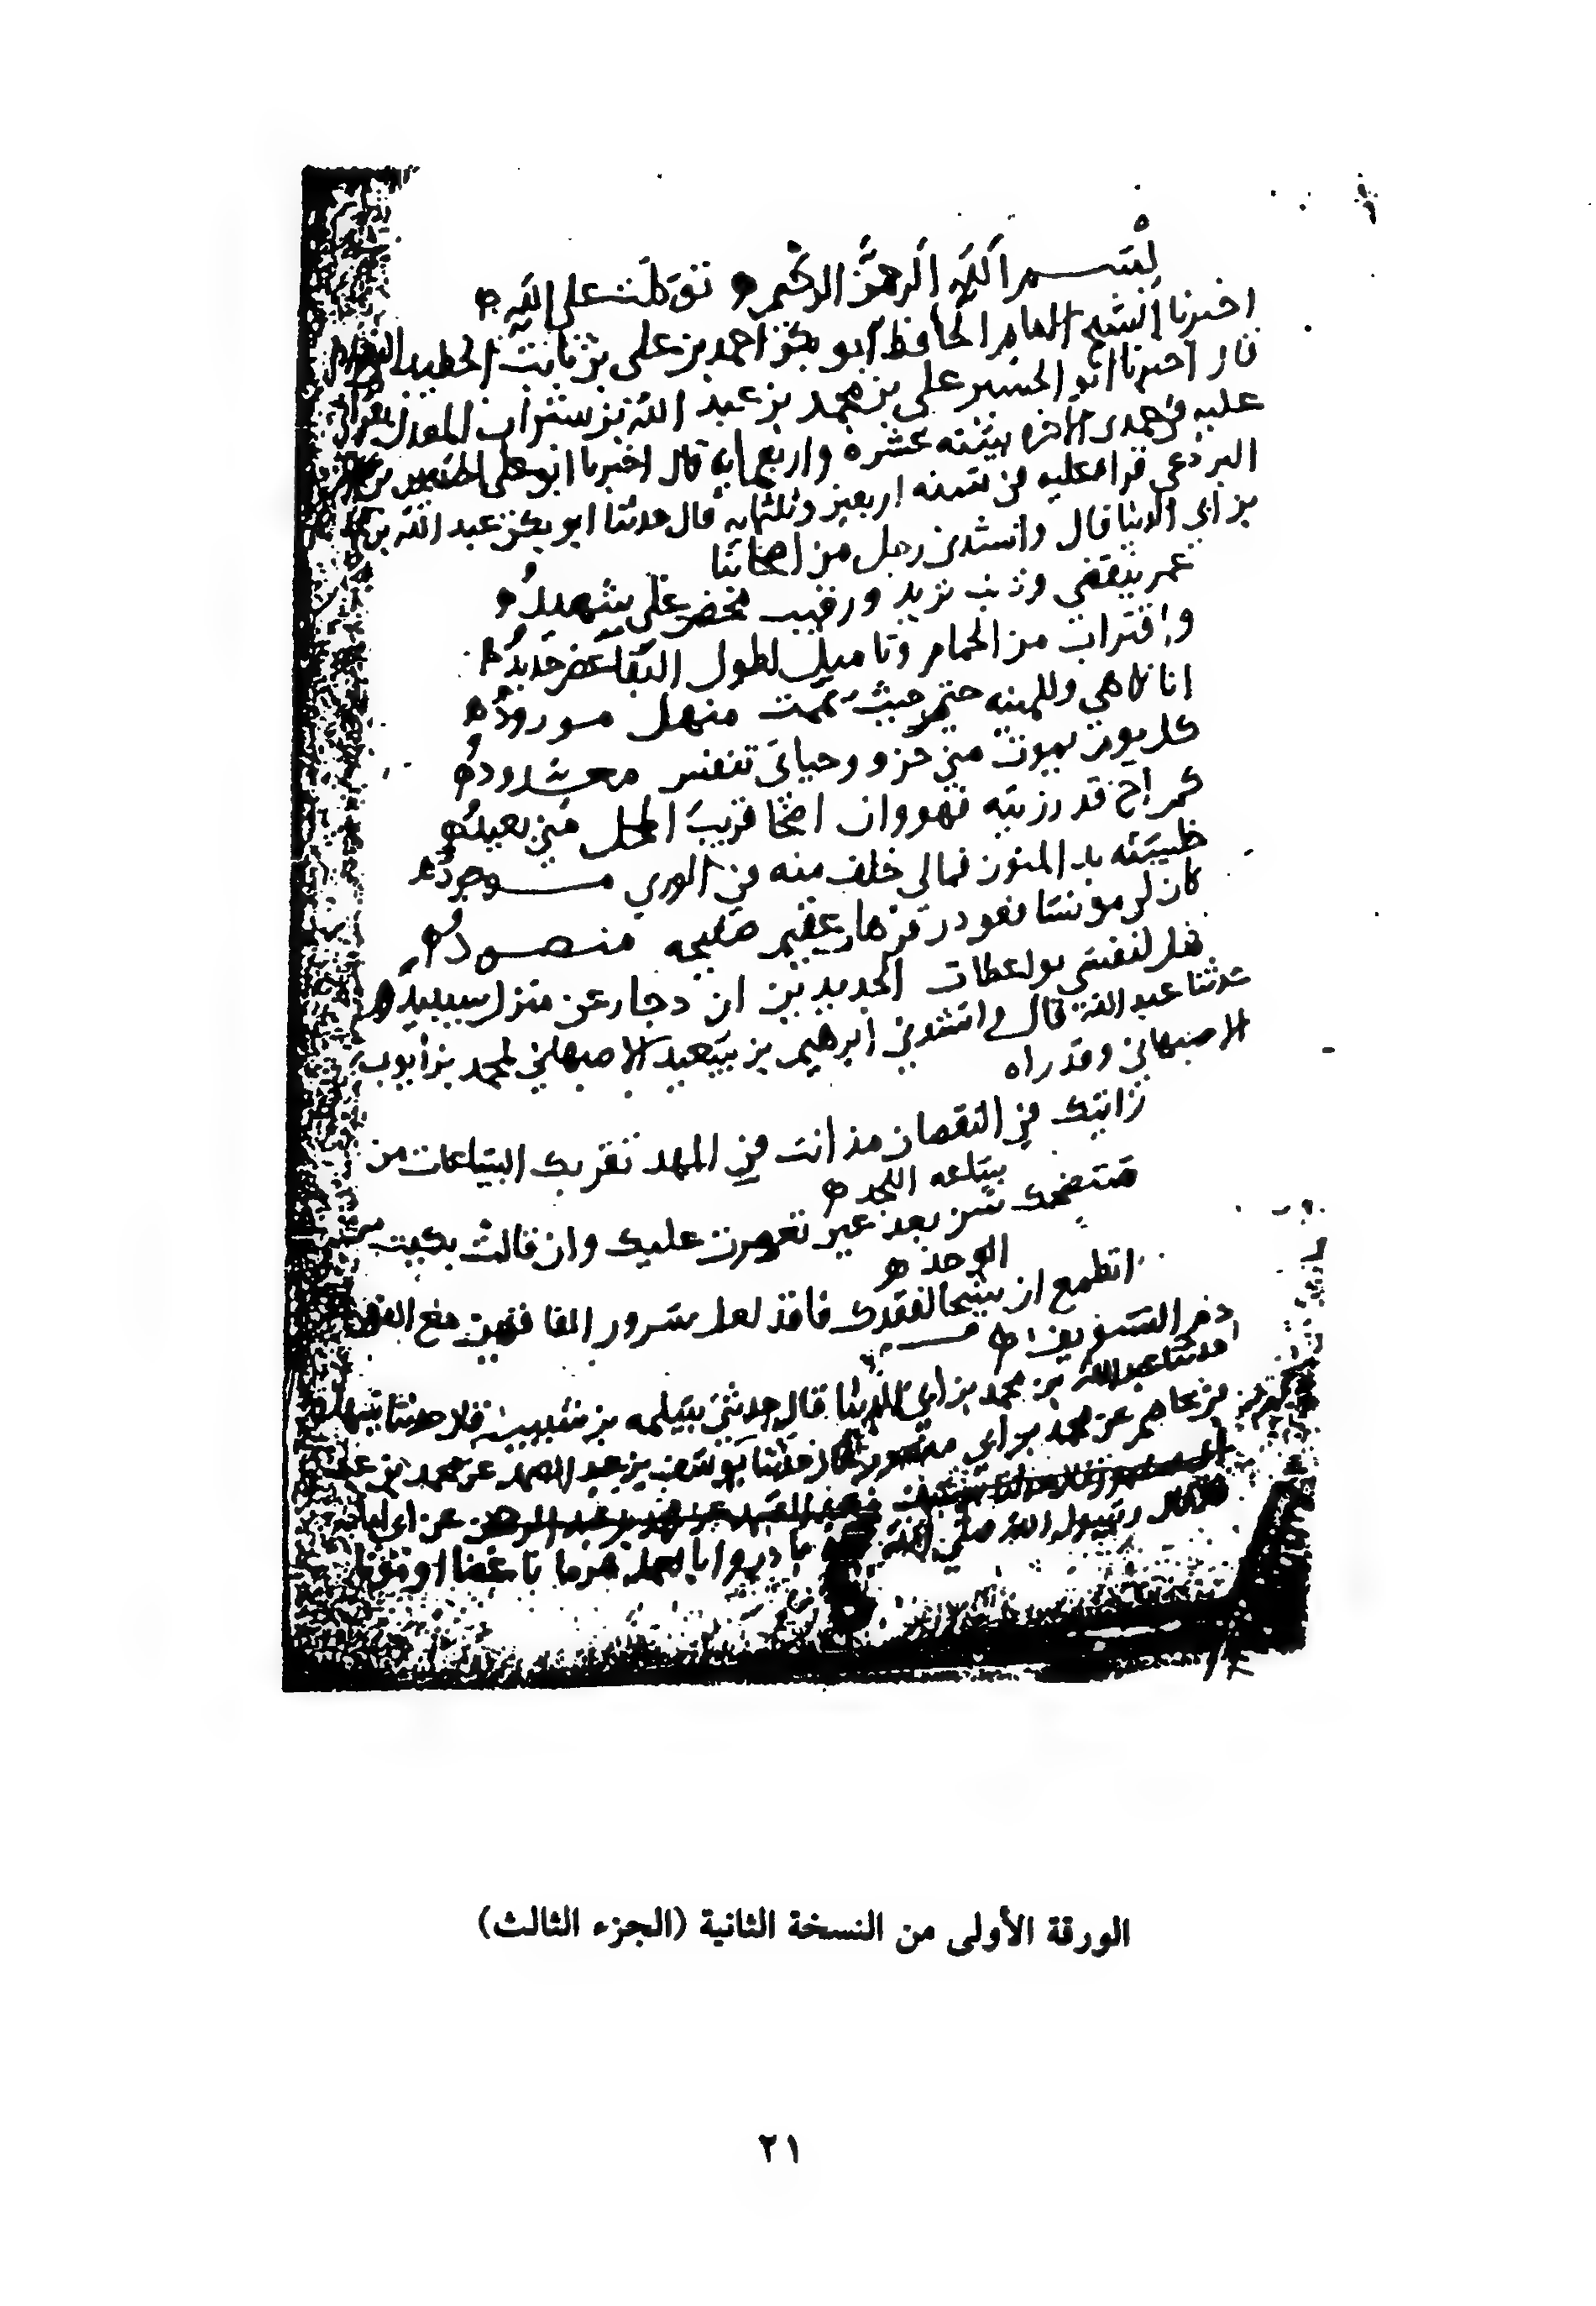 بسم الله الرحمن الرحيم توكلت على الله
اخبرنا الشيخ الامام الحافظ ابو بكر احمد بن علي بن ثابت الخطيب
قال اخبرنا ابو الحسين علي بن محمد بن عبد الله بن بشران المعدل
عليه في جمدى الاخره سنة عشرة واربع مايه قال اخبرنا ابو علي الحسين بن
البرذعي قراة عليه في سنة اربعين وثلثمايه قال حدثنا ابو بكر عبد الله بن
بن ابي الدنيا قال وانشدني رجل من اصحابنا
عمر ينقضي وذنب يزيد ورقيب محض علي شهيد
واقتراب من الحمام وتاميل لطول البقا عض جديد
انا لاهي وللمنيه حتم حيث يممت منهل مورود
كل يوم يموت مني جزو وحياتي تنفس معدود
كم اخ قد رزيته فهو وان اضحا قريب المحل مني بعيد
يد المنون فمالي خلف منه في الورى موجود
كان لي مونسا فغودر
هل لنفسي بواعظات الجديدين ان عن منزل سيبيد
حدثنا عبد الله قال وانشدني ابرهيم بن سعيد الاصبهاني لمحمد بن ايوب
الاصبهاني وقد راه
رايتك في النقصان مذ انت في المهد تقربك الساعات من
ساعه اللحد
ستضحك سن بعد عين تعصرت عليك وان قالت بكيت من
الوجد
اتطمع ان يشجا لفقدك فاقد لعل سرور الفاقدين مع الفقد
حدثنا عبد الله بن محمد بن ابي الدنيا قال حدثني سلمه بن شبيب قال حدثنا سهل
بن عاصم عن محمد بن ابي منصور قال حدثنا يوسف بن عبد الصمد عن محمد بن
عن ابي
قال رسول الله صلى الله بادروا بالعمل هرما ناغصا او موتا
الورقة الأولى من النسخة الثانية (الجزء الثالث)
٢١